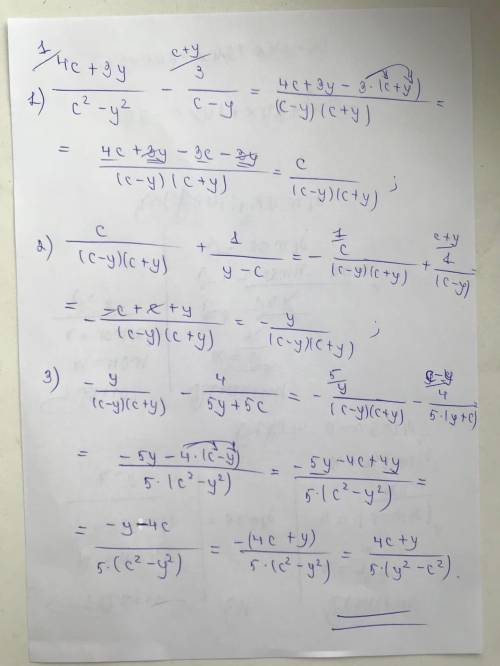 1) (4c + 3y)/(c² - y²) - 3/(c - y) = (4c + 3y - 3·(c + y))/((c - y)(c + y)) =
= (4c + 3y - 3c - 3y)/((c - y)(c + y)) = c/((c - y)(c + y)) ;
2) c/((c - y)(c + y)) + 1/(y - c) = - c/((c - y)(c + y)) + 1/(c - y) =
= - (-c + c + y)/((c - y)(c + y)) = - y/((c - y)(c + y)) ;
3) - y/((c - y)(c + y)) - 4/(5y + 5c) = - y/((c - y)(c + y)) - 4/(5·(y + c))
= (-5y - 4·(c - y))/(5·(c² - y²)) = (-5y - 4c + 4y)/(5·(c² - y²)) =
= (-y - 4c)/(5·(c² - y²)) = -(4c + y)/(5·(c² - y²)) = (4c + y)/(5·(y² - c²)).